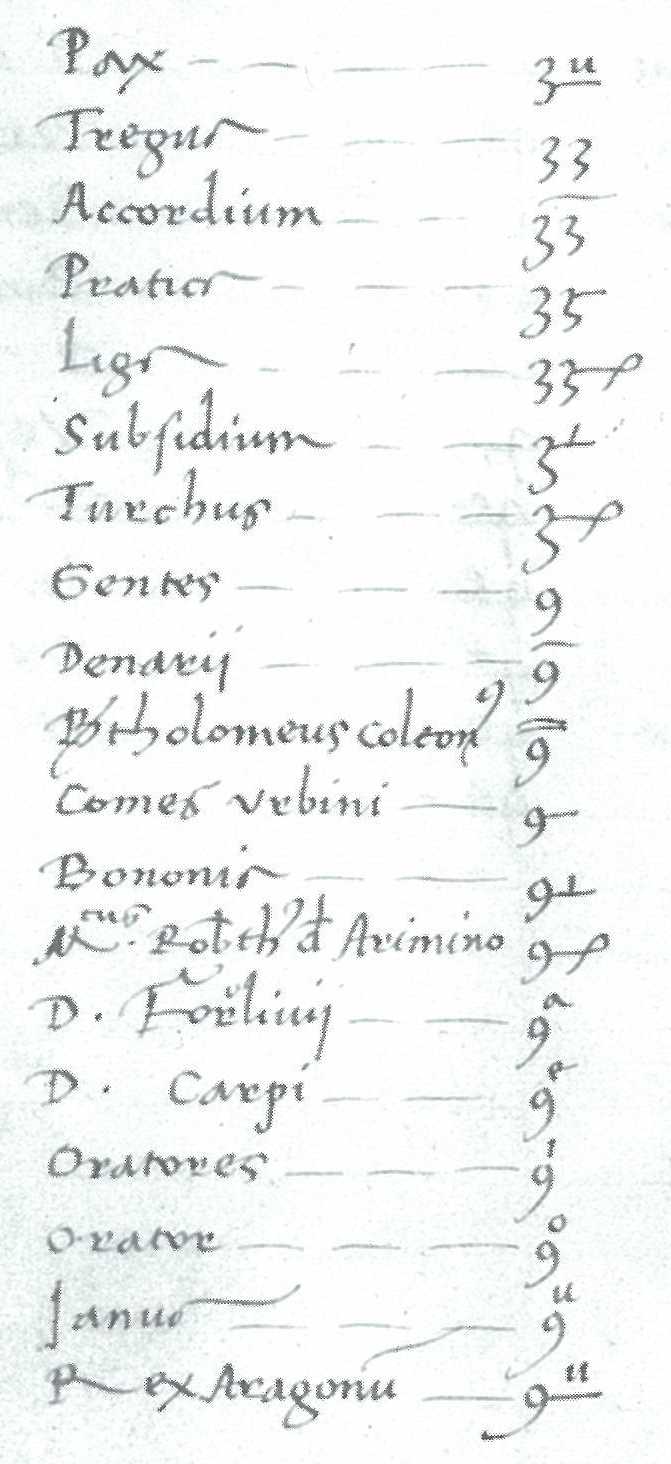 Pax — — — — 3ᵘ
Tregua — — — 33
Accordium — — 33
Pratica — — — 35
Liga — — — 33
Subsidium — — 3
Turchus — — — 3
Gentes — — — 9
Denarij — — — 9
Bartholomeus Coleon 9
Comes Urbini — 9
Bononia — — 9
Robth d Arimino 9
D. Forlivij — — 9ᵃ
D. Carpi — — 9ᵉ
Oratores — — — 9ⁱ
Orator — — — 9ᵒ
Janua — — — 9ᵘ
Rex Aragonu — 9ᵘ